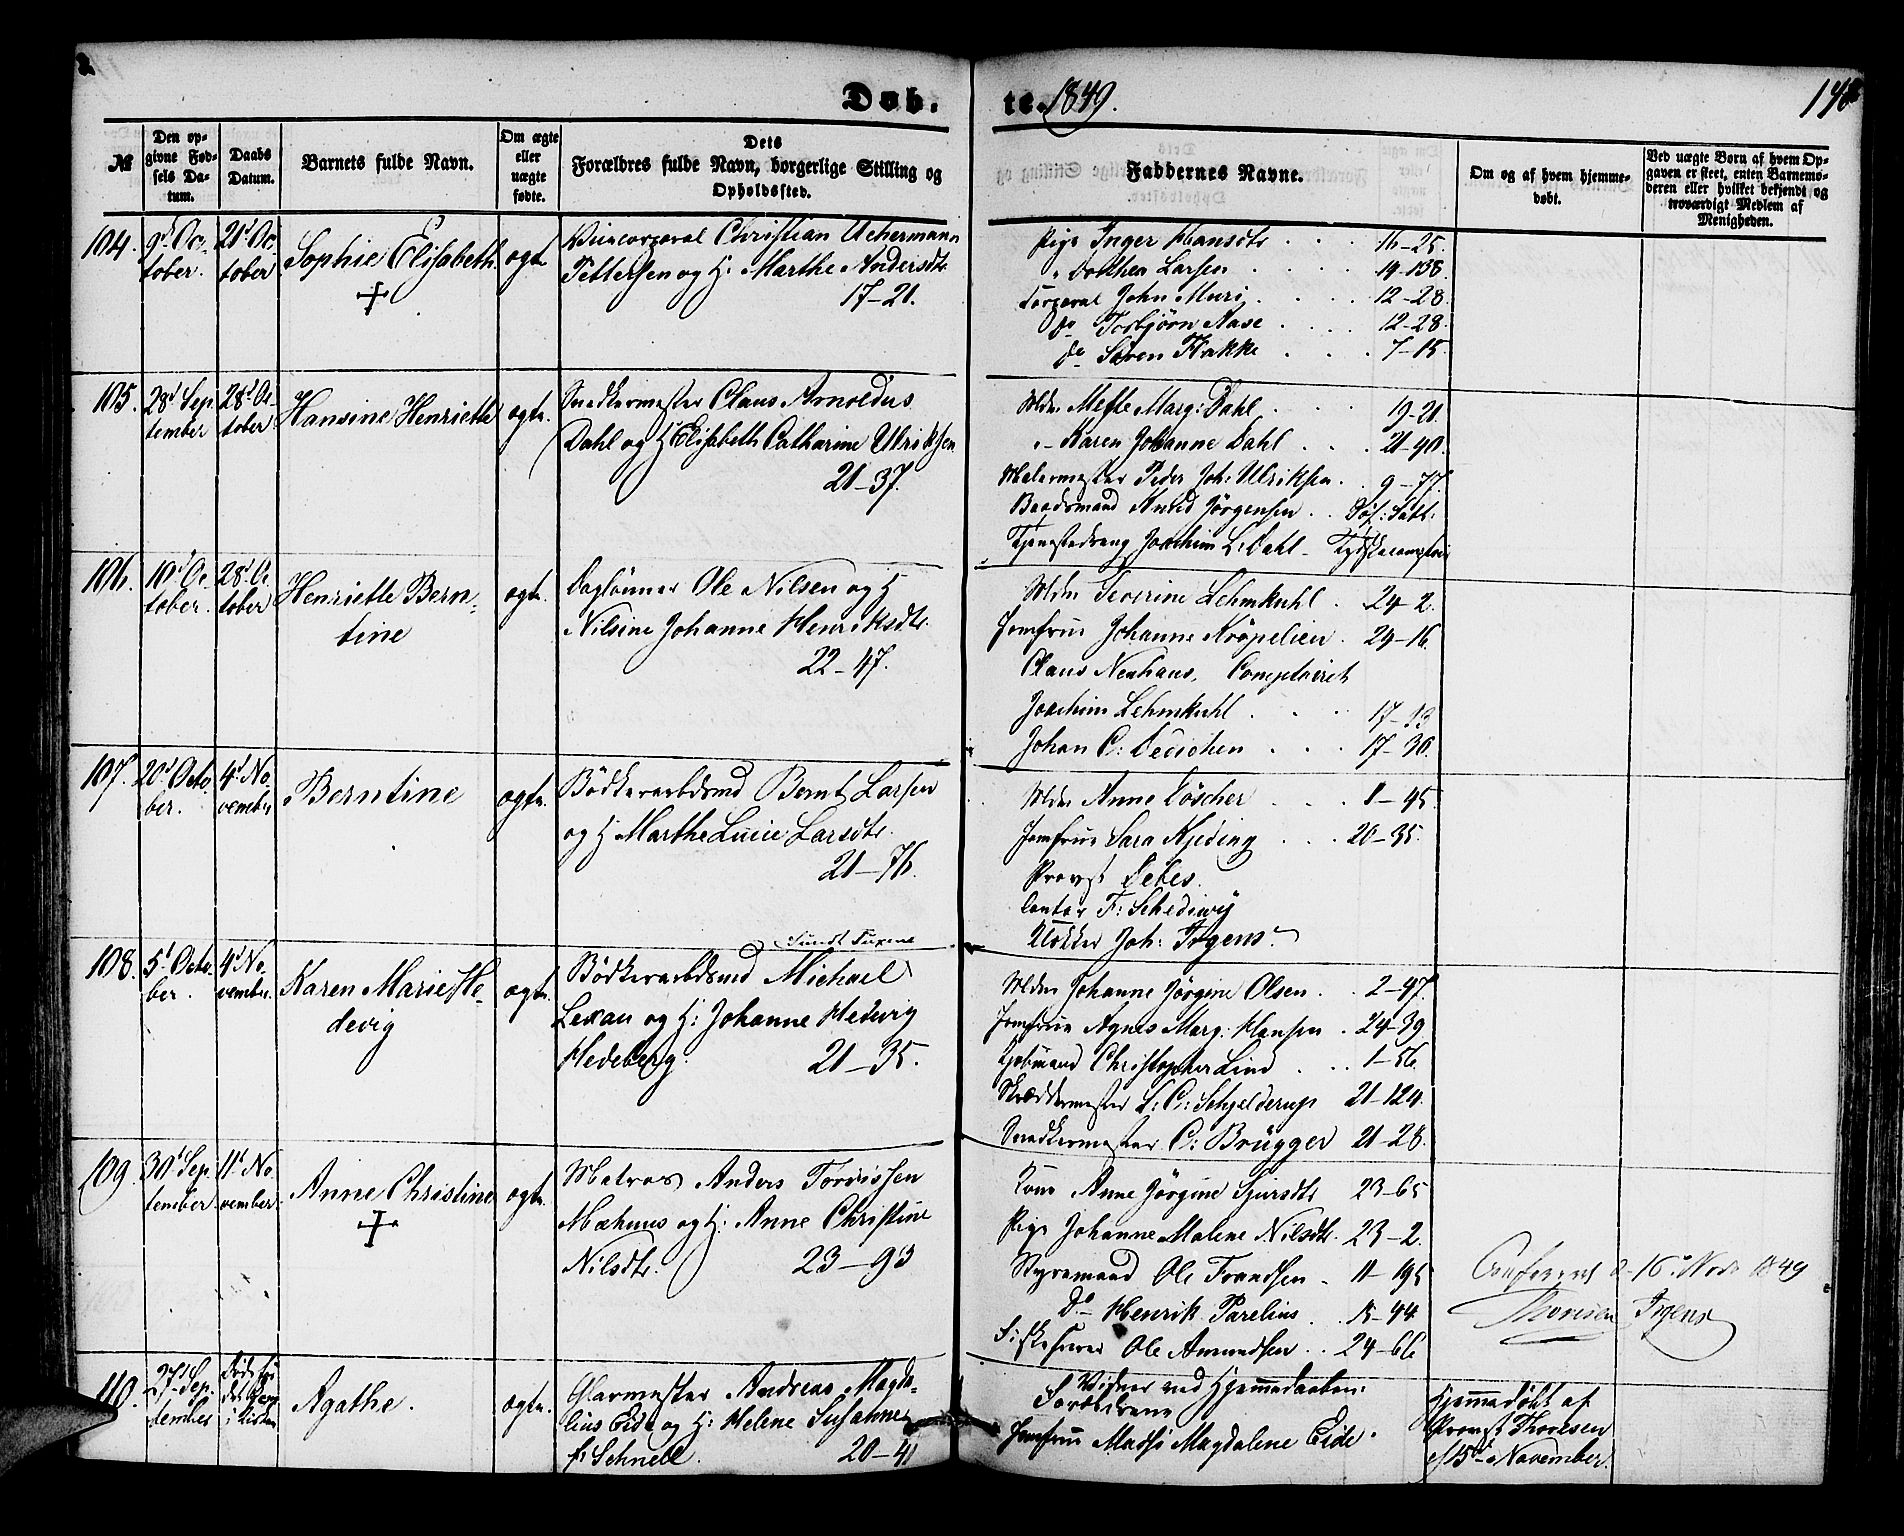 Døb. te. 1849.
№
Den opgivne Fødsels Datum.
Daabs Datum.
Barnets fulde Navn.
Om ægte eller uægte fødte.
Dets Forældres fulde Navn, borgerlige Stilling og Opholdssted.
Faddernes Navne.
Om og af hvem hjemmedøbt.
Ved uægte Børn af hvem Opgaven er skeet, enten Barnemoderen eller hvilket bekjendt og troværdigt Medlem af Menigheden.
104. 9d Oc-
tober.
21d Oc
tober
Sophie Elisabeth
ægte
Christian Uchermann
Pettersen og H: Marthe Andersdtr
17-21.
Pige Inger Hansdtr 16-25.
" Dorthea Larsen 19-138.
Corporal John Muri 12-28
do Torbjørn Aase 12-28.
do Søren Flakke 7-15.
105. 28d Sep
tember
28d Oc
tober
Hansine Henriette
ægte.
Snedkermester Claus Arnoldus
Dahl og H Elisabeth Catharine Ulriksen
21-37.
Md Mette Marg: Dahl 19-21
" Karen Johanne Dahl 21-90.
Malermester Peder Joh: Ulriksen 9-77.
Baadsmand Amund Jørgensen
Tjenestedreng Joachim L: Dahl
106. 10d Oc
tober.
28d Oc
tober
Henriette Bern-
tine
ægte.
Daglønner Ole Nilsen og H
Nilsine Johanne Henriksdtr.
22-47.
Severine Lehmkuhl 24-2.
Jomfrue Johanne Krøpelien 24-16.
Claus Neuhaus, Comptoirist
Joachim Lehmkuhl 17-13
Johan C: Dedichen 17-30.
107. 20d Octo
ber.
4d No
vember
Berntine
ægte.
Bødkerarbdsmd Bernt Larsen
og H Marthe Lucie Larsdtr.
21-76.
Anne Løscher 8-45
Jomfrue Sara Kjeding 20-35.
Provst Debes.
Cantor F: Schediwÿ
Klokker Joh: Irgens.
Sundt Tuxene
108. 5d Octo
ber.
4d No
vember.
Karen Marie He-
devig
ægte.
Bødkerarbdsmd Michael
Lexau og H: Johanne Hedevig
Hedeberg. 21-35.
Johanne Jørgine Olsen 2-47.
Jomfrue Agnes Marg: Hansen 24-39
Kjøbmand Christopher Lind 1-56.
Skræddermester L: C: Schjelderup 21-124.
Snedkermester C: Brügger 21-28.
109. 30d Sep
tember
11d No
vember.
Anne Christine
ægte.
Matros Anders Torrissen
Mæhuus og H: Anne Christine
Nilsdtr. 23-93
Kone Anne Jørgine Sjursdtr 23-65
Pige Johanne Malene Nilsdtr. 23-2.
Styrmand Ole Frandsen 11-195
Do Henrik Parelius 15-44
Ole Amundsen 24-66
Confereret d. 16 Novbr 1849
Thoresen Irgens
110. 27d Sep-
tember
Agathe.
ægte.
Glarmester Andreas Magde-
lius Eide og H: Helene Susanne
f: Schnell. 20-41
Vidner ved Hjemmedaaben:
Forældrene
Jomfrue Madsi Magdalene Eide.
Hjemmedøbt af
Provst Thoresen
d/15d November.